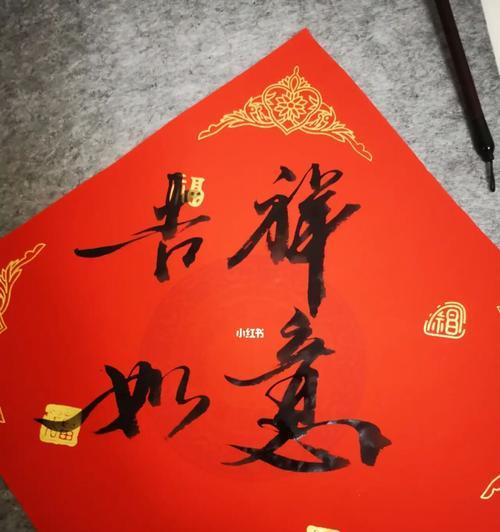 吉祥
如意
小红书
福
福
福